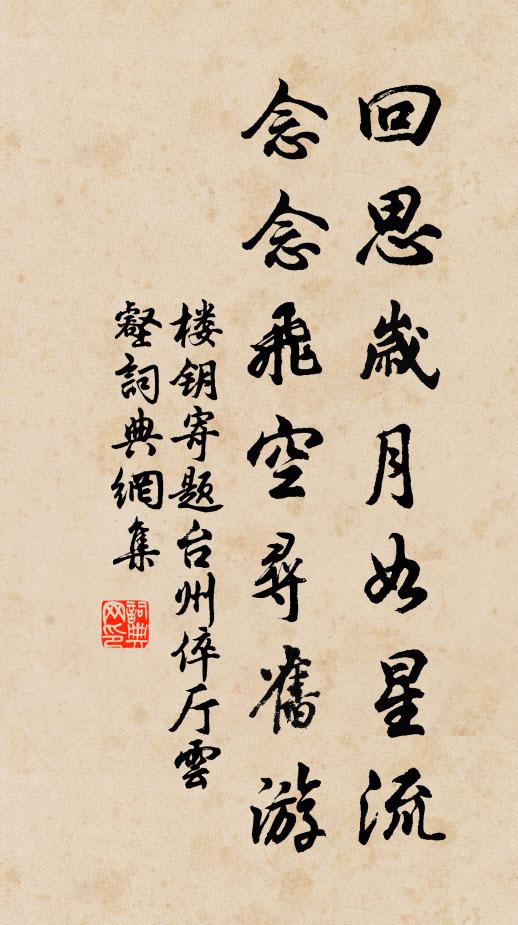 回思歲月如星流
念念飛空尋舊游
楼钥寄题台州倅厅雲
壑詞典網集
詞典网印